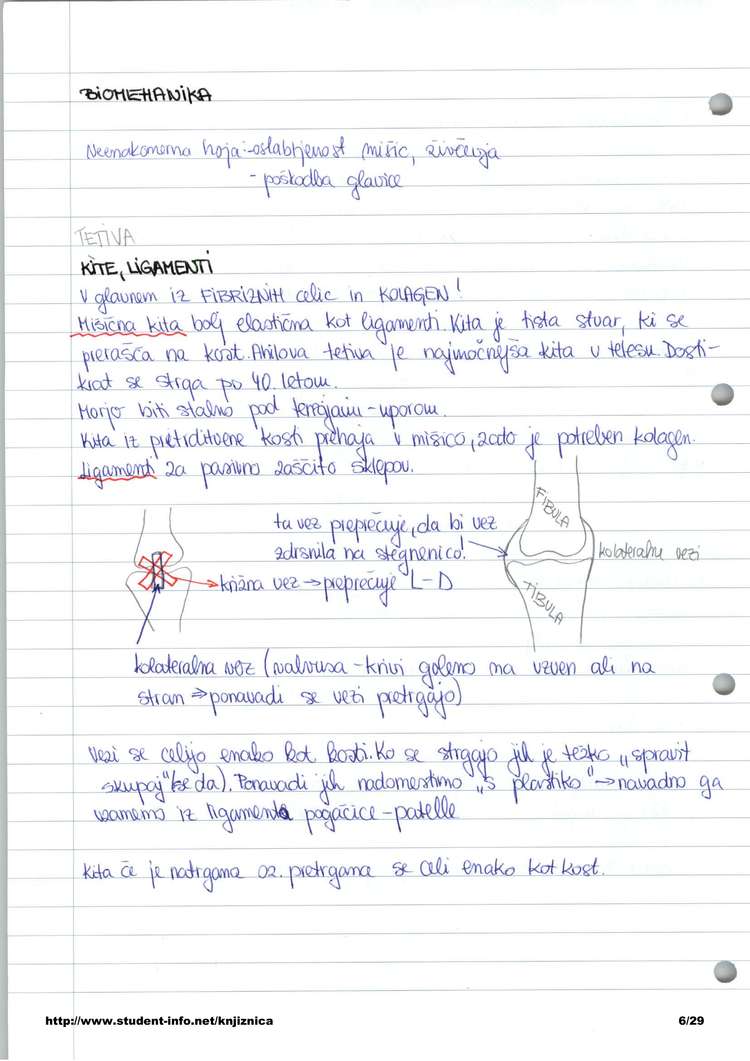 BIOMEHANIKA
Neenakomerna hoja:-oslabljenost mišic, živčevja
- poškodba glavice
TETIVA
KITE, LIGAMENTI
V glavnem iz FIBRIZNIH celic in KOLAGEN!
Mišična kita bolj elastična kot ligamenti. Kita je tista stvar, ki se
prerašča na kost. Ahilova tetiva je najmočnejša kita v telesu. Dosti-
krat se strga po 40. letom.
Morjo biti stalno pod - uporom.
Kita iz kosti prehaja v mišico, zato je potreben kolagen.
Ligamenti za pasivno zaščito sklepov.
FIBULA
ta vez preprečuje, da bi vez
zdrsnila na stegnenico!
kolateralne vezi
križna vez → preprečuje L-D
TIBULA
kolateralna vez (valvusa - krivi goleno na uzven ali na
stran ⇒ ponavadi se vezi pretrgajo)
Vezi se celijo enako kot kosti. Ko se strgajo jih je težko „spravit
skupaj" (se da). Ponavadi jih nadomestimo „s plastiko" → navadno ga
vzamemo iz ligamenta pogačice - patelle
Kita če je natrgana oz. pretrgana se celi enako kot kost.
http://www.student-info.net/knjiznica
6/29